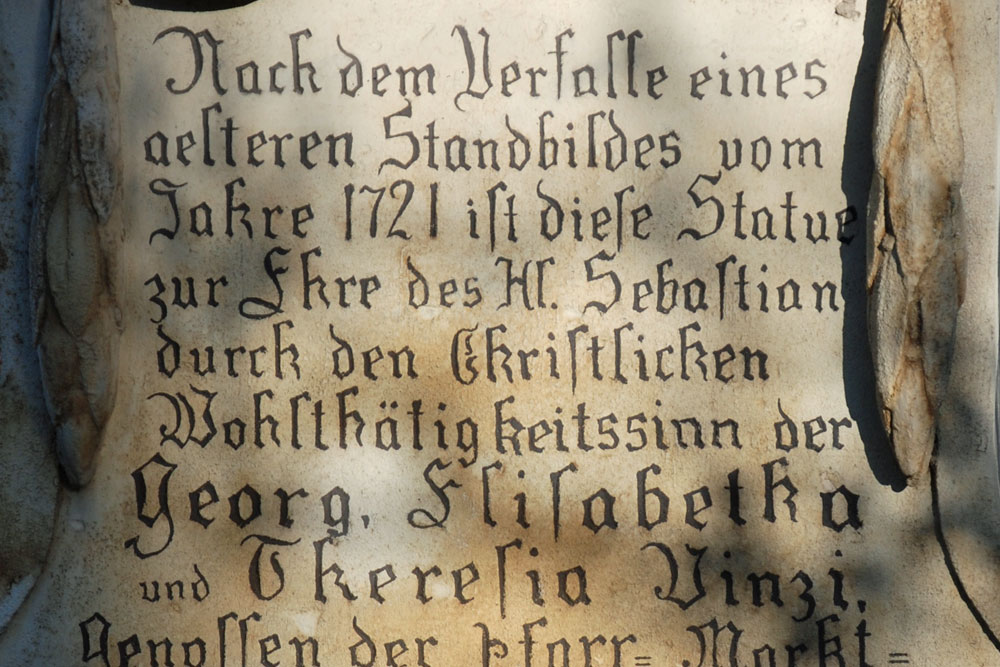 Nach dem Verfalle eines
aelteren Standbildes vom
Jahre 1721 ist diese Statue
zur Ehre des Hl. Sebastian
durch den Christlichen
Wohlthätigkeitssinn der
Georg, Elisabetha
und Theresia Vinzi,
Genossen der Pfarr= Markt=